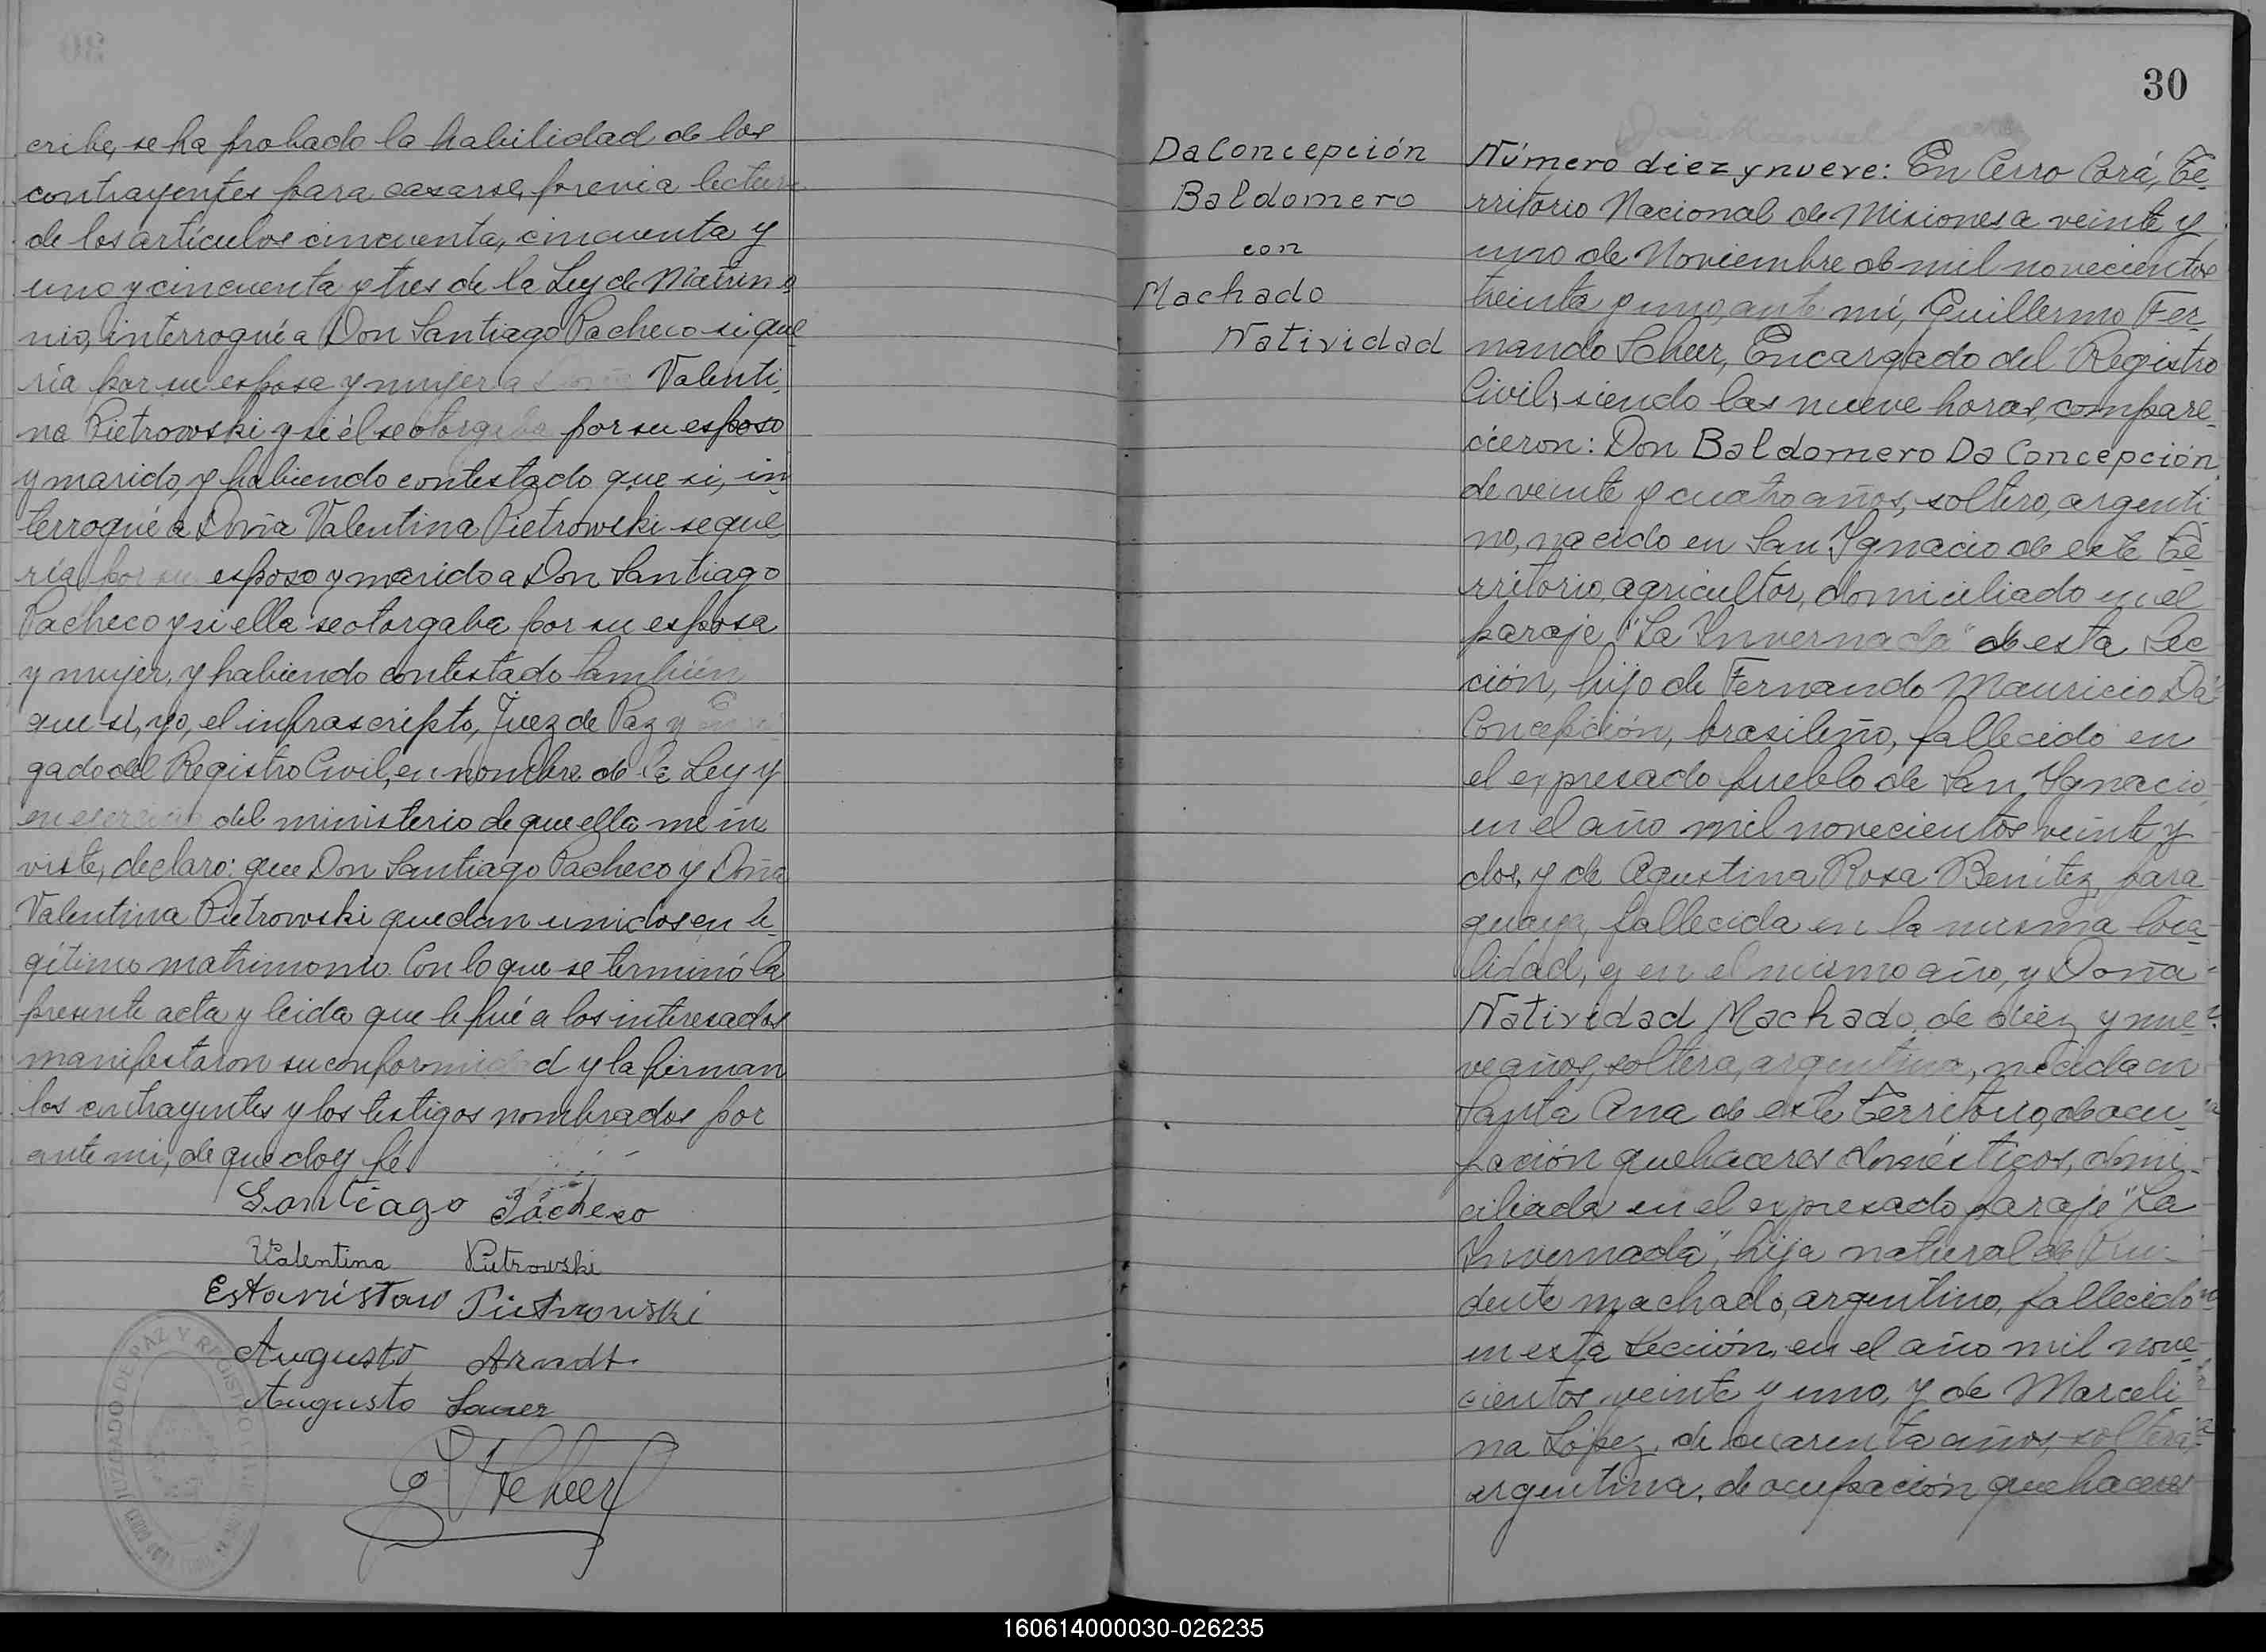 cribe, se ha probado la habilidad de los
contrayentes para casarse, previa lectura
de los artículos cincuenta, cincuenta y
uno y cincuenta y tres de la Ley de Matrimo
nio, interrogué a Don Santiago Pacheco si que
ría por su esposa y mujer a Doña Valenti
na Pietrowski y si él se otorgaba por su esposo
y marido, y habiendo contestado que si, in
terrogué a Doña Valentina Pietrowski se que
ría por su esposo y marido a Don Santiago
Pacheco y si ella se otorgaba por su esposa
y mujer, y habiendo contestado también
que si, yo, el infrascripto, Juez de Paz y
gado del Registro Civil, en nombre de la Ley y
en ejercicio del ministerio de que ella me in
viste, declaro: que Don Santiago Pacheco y Doña
Valentina Pietrowski quedan unidos en le-
gítimo matrimonio. Con lo que se terminó la
presente acta y leida que le fué a los interesados
manifestaron su conformidad y la firman
los contrayentes y los testigos nombrados por
ante mi, de que doy fé.
Santiago Pacheco
Valentina Pietrowski
Estanistaw Pietrowski
Augusto Arndt.
Augusto Sauer
G F Scheer
JUZGADO DE PAZ Y REGISTRO
30
Da Concepción
Baldomero
con
Machado
Natividad
Número diez y nueve: En Cerro Corá, Te-
rritorio Nacional de Misiones a veinte y
uno de Noviembre de mil novecientos
treinta y uno, ante mí, Guillermo Fer-
nando Scheer, Encargado del Registro
Civil, siendo las nueve horas, compare-
cieron: Don Baldomero Da Concepción,
de veinte y cuatro años, soltero, argenti
no, nacido en San Ygnacio de este Te-
rritorio, agricultor, domiciliado en el
paraje "La Invernada" de esta Sec
ción, hijo de Fernando Mauricio Da
Concepción, brasileño, fallecido en
el expresado pueblo de San Ygnacio,
en el año mil novecientos veinte y
dos, y de Agustina Rosa Benítez, para
guaya, fallecida en la misma loca-
lidad, y en el mismo año, y Doña
Natividad Machado, de diez y nue-
ve años, soltera, argentina, nacida en
Santa Ana de este Territorio, de ocu-
pación quehaceres domésticos, domi-
ciliada en el expresado paraje "La
Invernada", hija natural de Pru-
dente Machado, argentino, fallecido
en esta Sección, en el año mil nove-
cientos veinte y uno, y de Marceli
na López, de cuarenta años, soltera,
argentina, de ocupación quehaceres
160614000030-026235